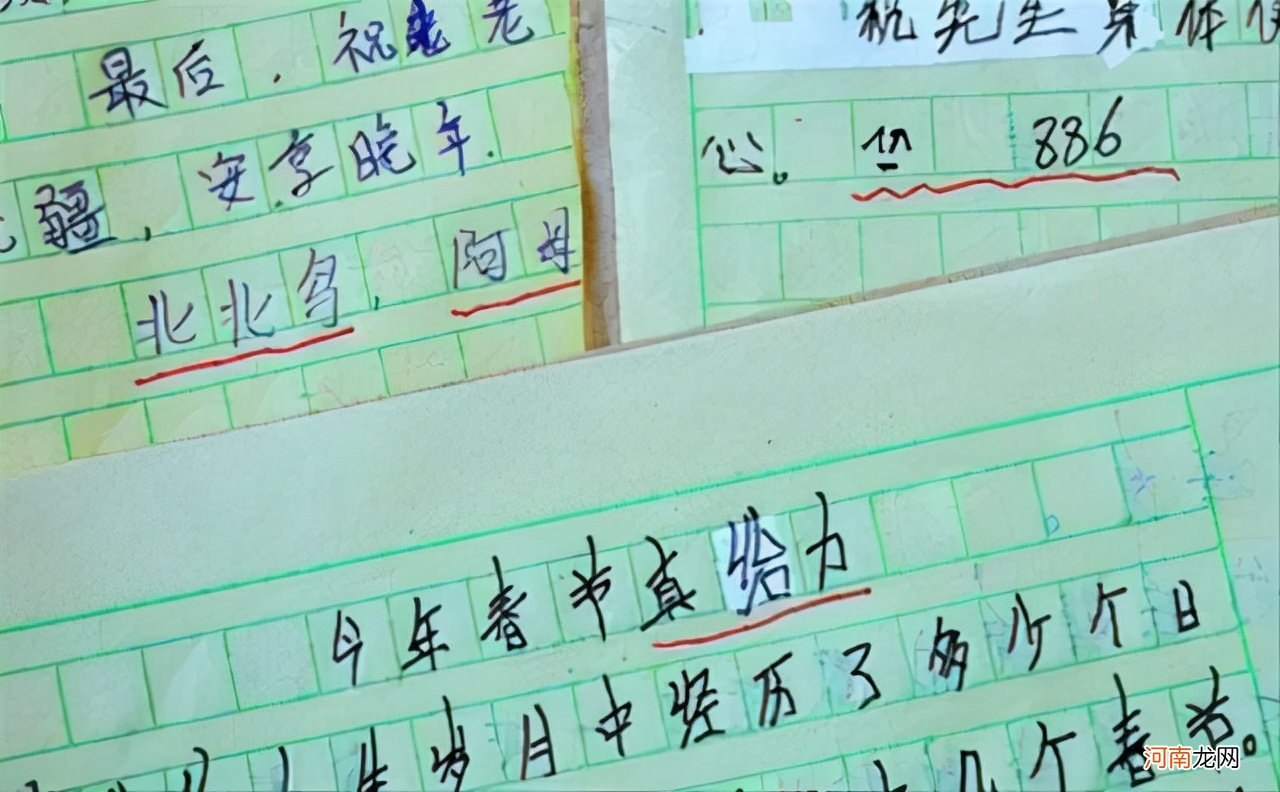 最后．祝老老
疆，安享晚年．
北北鸟，阿母
祝先生身体
心。 886
今年春节真给力
生岁月中经历了多少个日
几个春节。
河南龙网